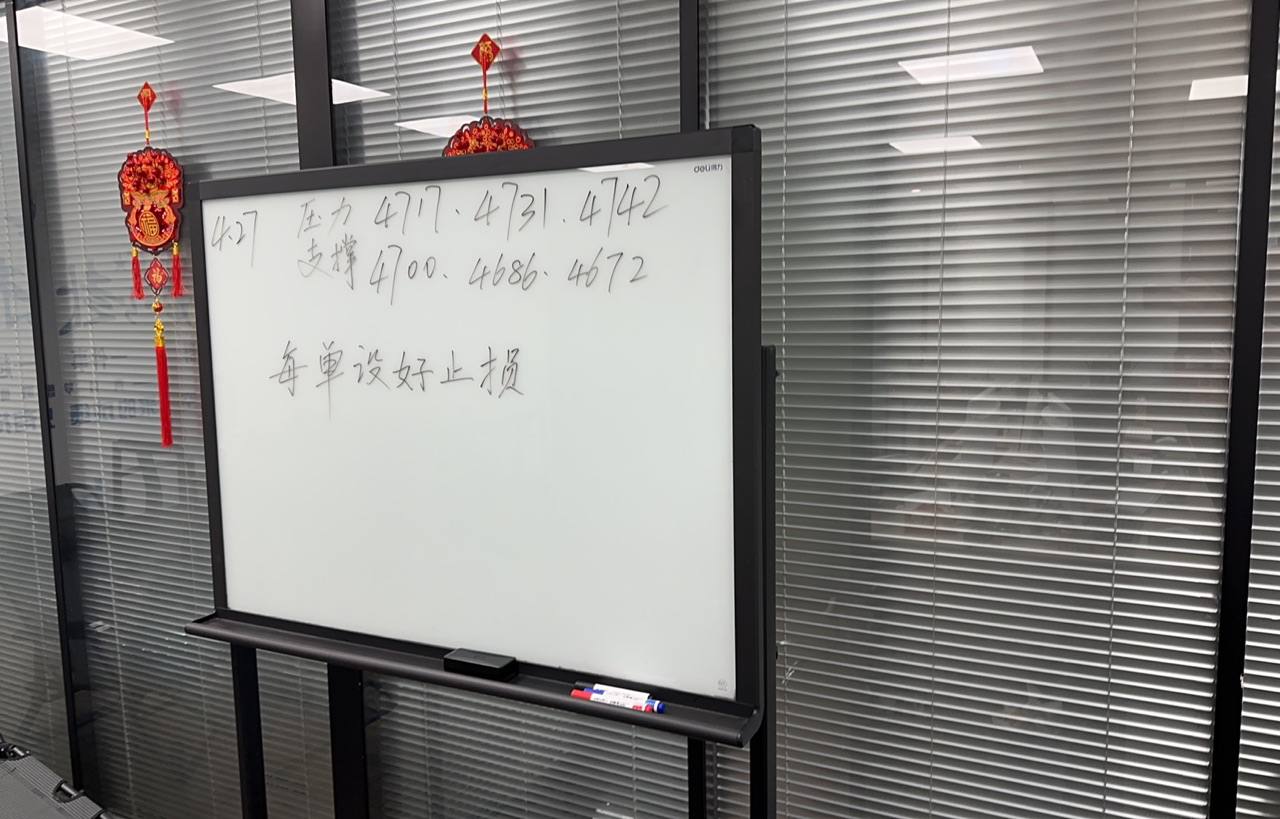 deli得力
4.27 压力 4717、4731、4742
支撑 4700、4686、4672
每单设好止损
福
福